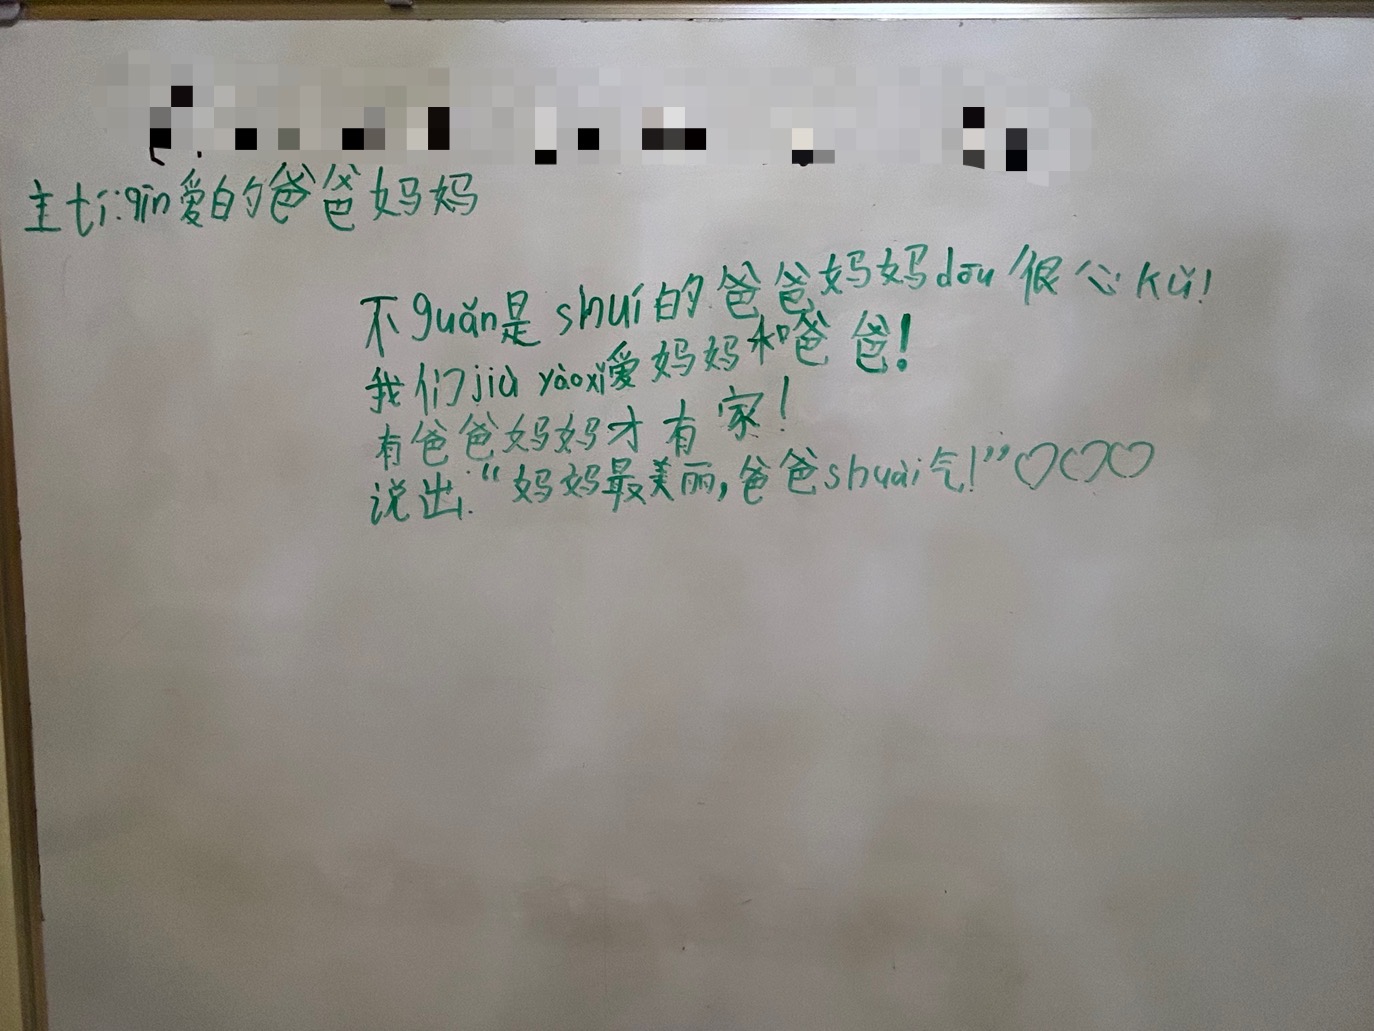 主tí:qīn爱的爸爸妈妈
不guǎn是shuí的爸爸妈妈dōu很心kǔ!
我们jiù yàoxǐ爱妈妈和爸爸!
有爸爸妈妈才有家!
说出:“妈妈最美丽,爸爸shuài气!”♡♡♡